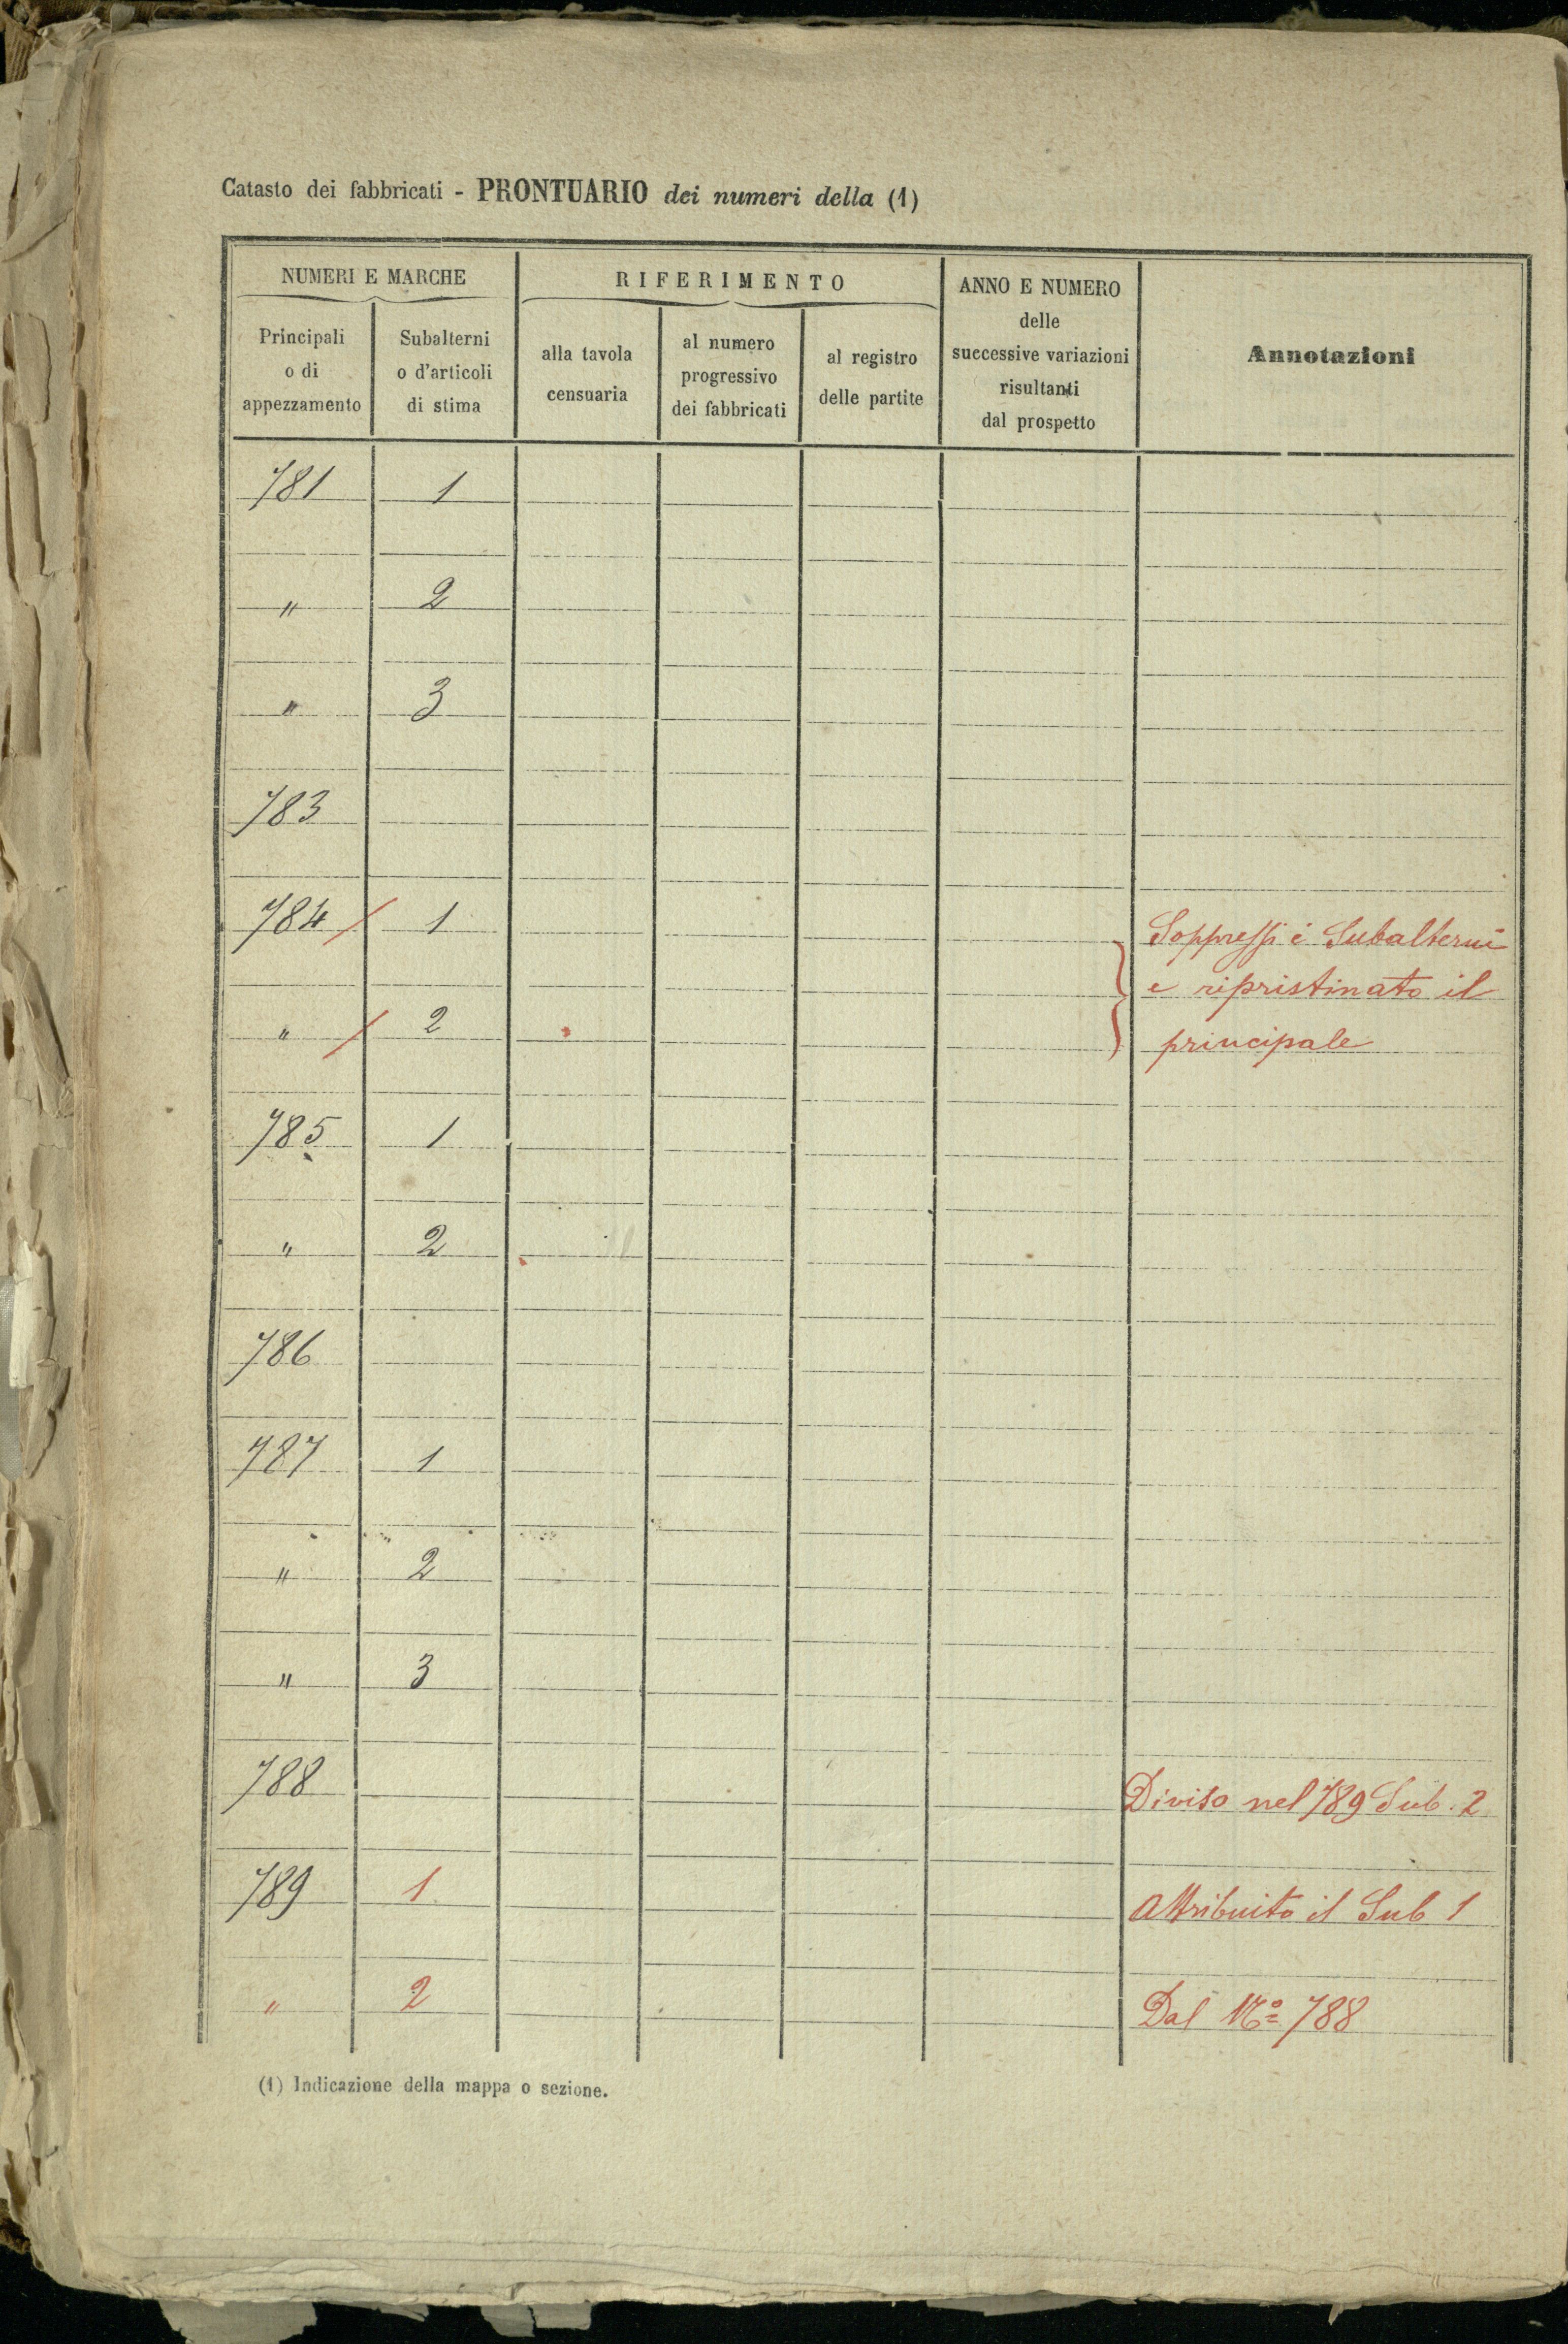 Catasto dei fabbricati - PRONTUARIO dei numeri della (1)
NUMERI E MARCHE
RIFERIMENTO
ANNO E NUMERO
delle
successive variazioni
risultanti
dal prospetto
Annotazioni
Principali
o di
appezzamento
Subalterni
o d'articoli
di stima
alla tavola
censuaria
al numero
progressivo
dei fabbricati
al registro
delle partite
781 1
" 2
" 3
783
784 / 1 Soppressi i Subalterni
e ripristinato il
" / 2 principale
785 1
" 2
786
787 1
" 2
" 3
788 Diviso nel 789 Sub. 2
789 1 Attribuito il Sub 1
" 2 Dal Nº 788
(1) Indicazione della mappa o sezione.